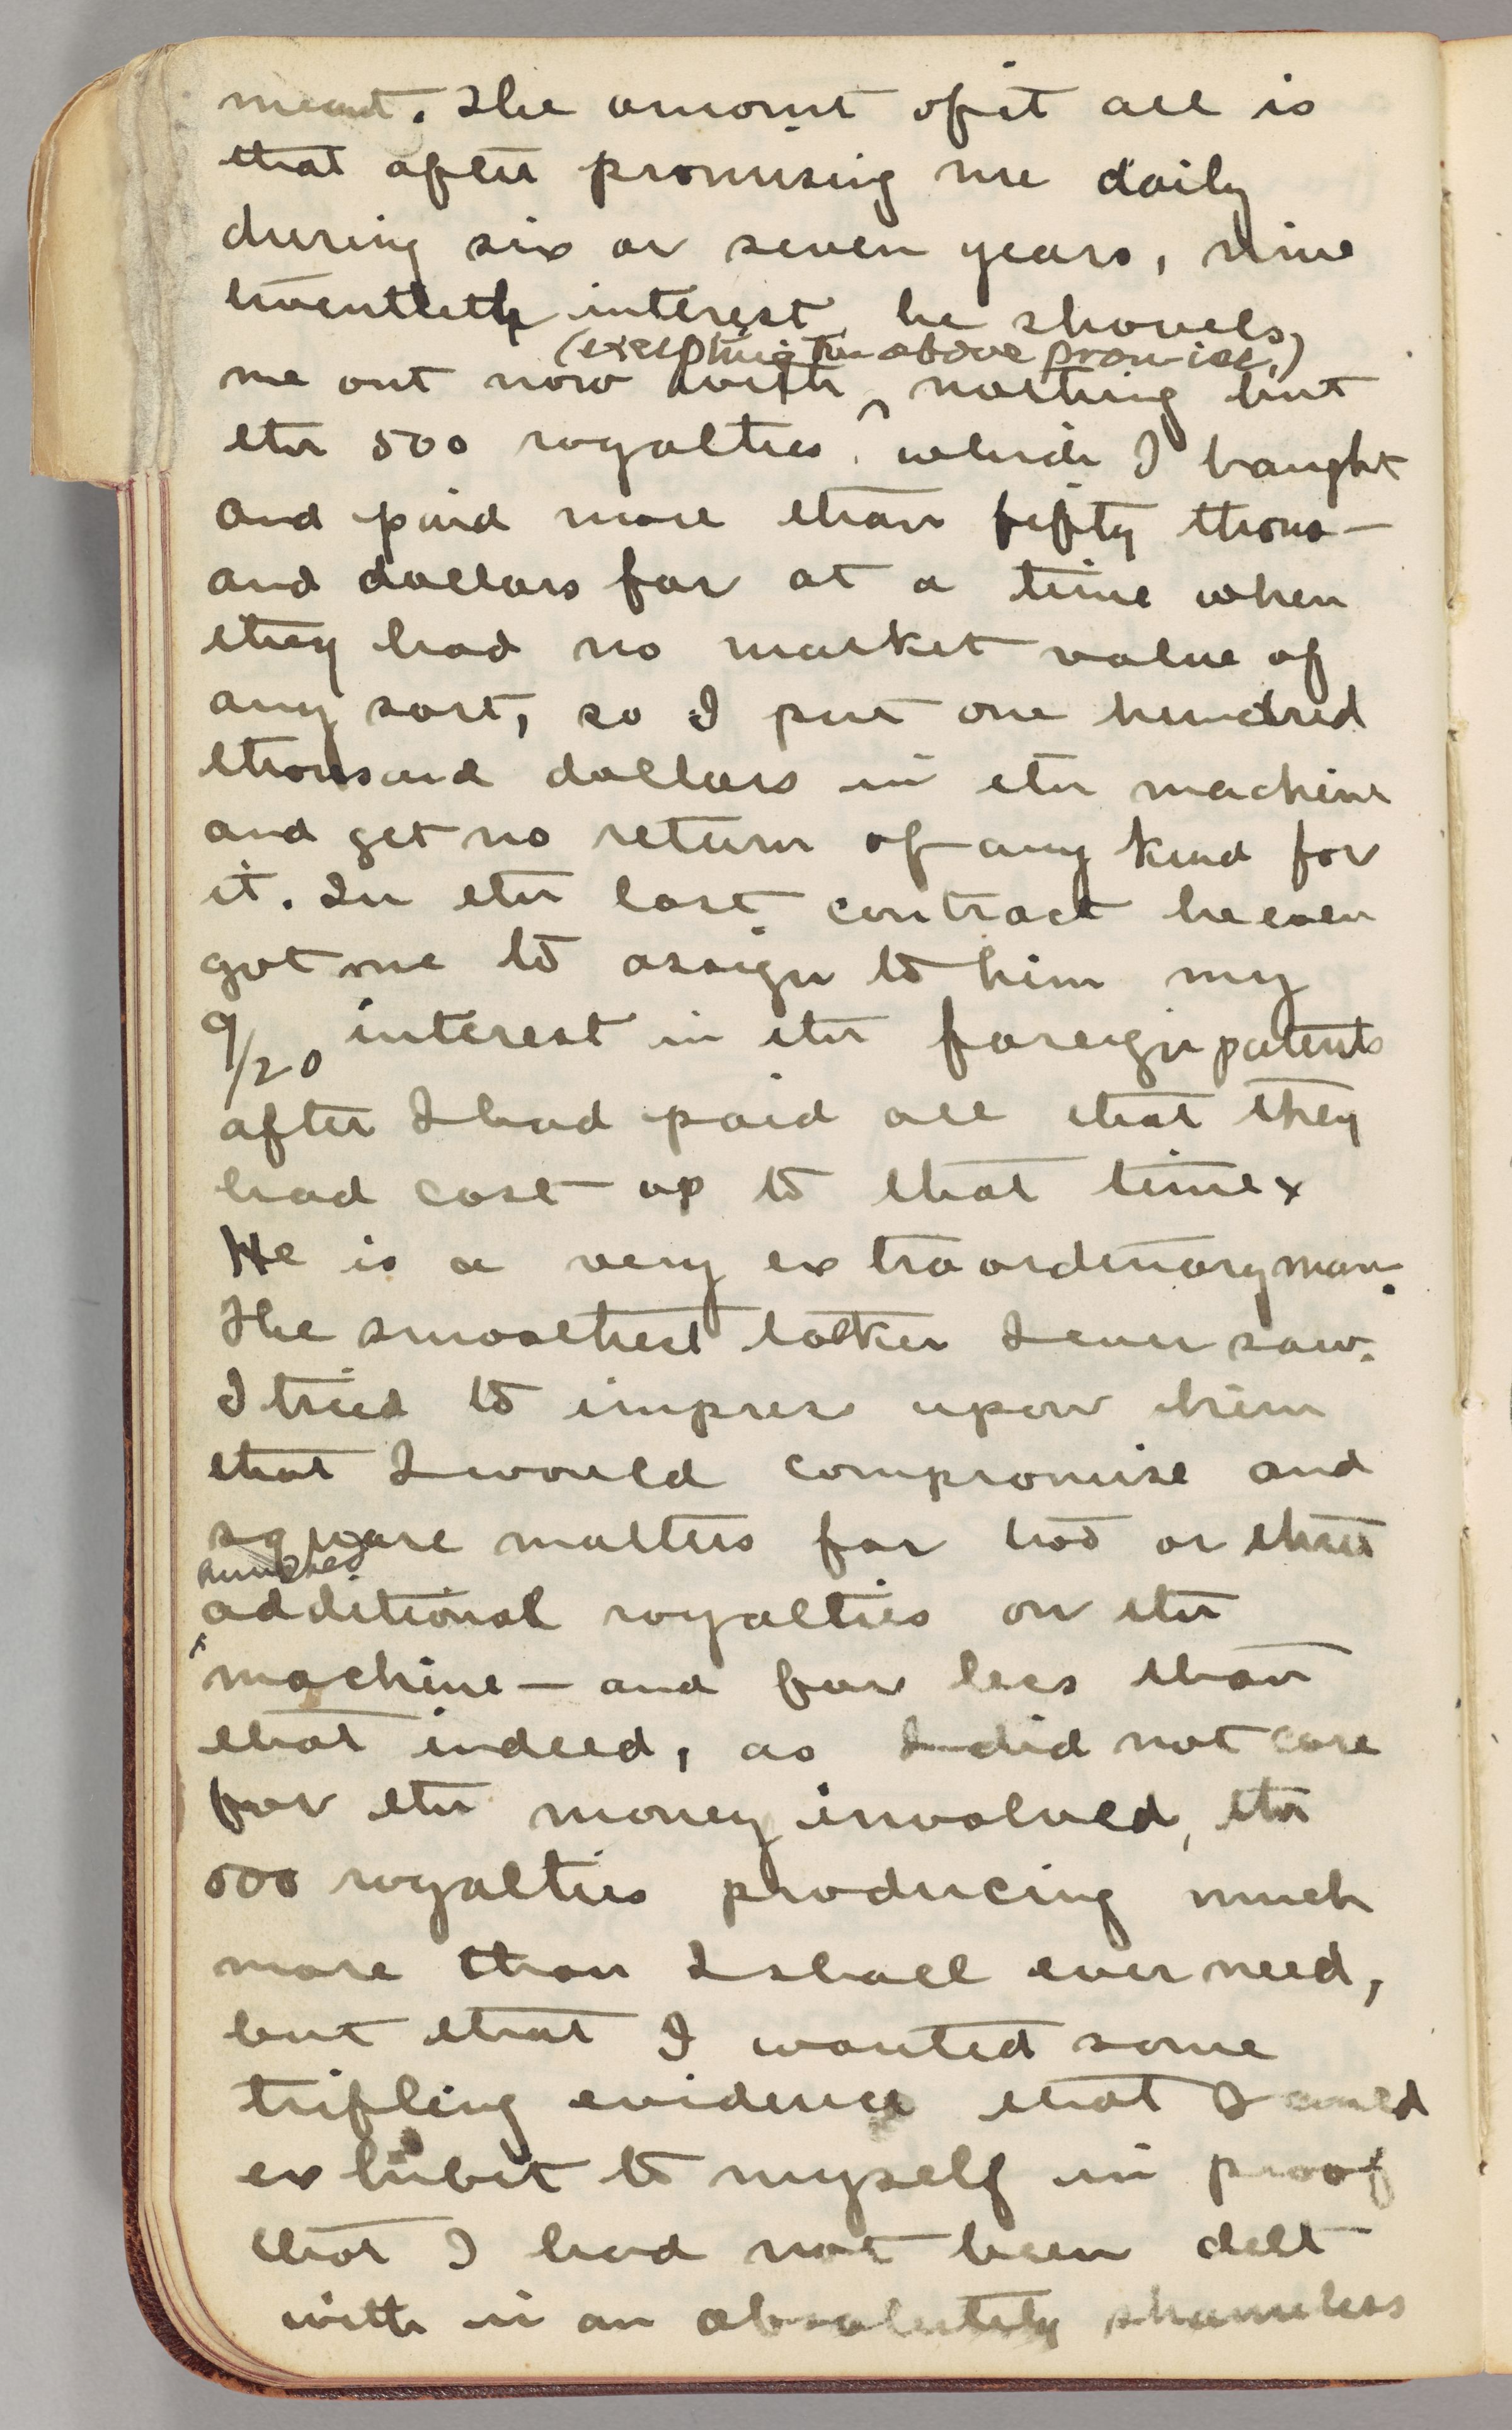 meant. The amount of it all is
that after promising me daily
during six or seven years, nine
twentieth interest, he shovels
(excepting the above promise,)
me out now with ‸ nothing but
the 500 royalties which I bought
and paid more than fifty thous-
and dollars for at a time when
they had no market value of
any sort, so I put one hundred
thousand dollars in the machine
and get no return of any kind for
it. In the last contract he even
got me to assign to him my
9/20 interest in the foreign patents
after I had paid all that they
had cost up to that time x
He is a very extraordinary man.
The smoothest talker I ever saw.
I tried to impress upon him
that I would compromise and
square matters for two or three
hundred
‸ additional royalties on the
machine — and for less than
that indeed, as I did not care
for the money involved, the
500 royalties producing much
more than I shall ever need,
but that I wanted some
trifling evidence that I could
exhibit to myself in proof
that I had not been delt
with in an absolutely shameless